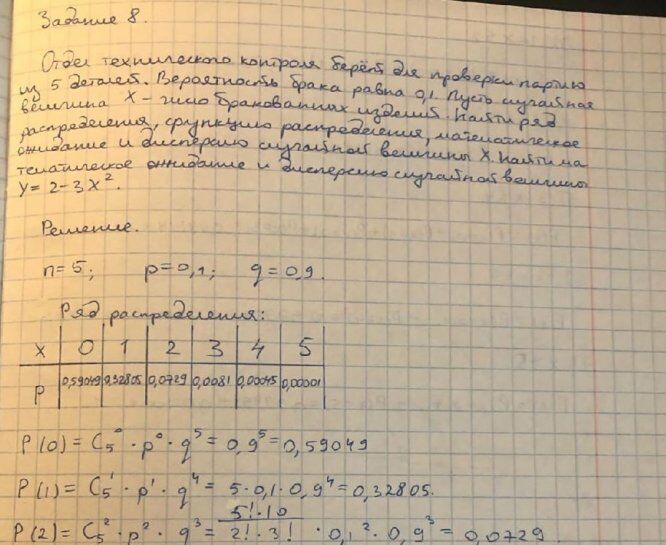 Задание 8.
Отдел технического контроля берёт для проверки партию
из 5 деталей. Вероятность брака равна 0,1. Пусть случайная
величина X – число бракованных изделий. Найти ряд
распределения, функцию распределения, математическое
ожидание и дисперсию случайной величины X. Найти ма
тематическое ожидание и дисперсию случайной величины
Y = 2 - 3X².
Решение.
n = 5; p = 0,1; q = 0,9.
Ряд распределения:
X 0 1 2 3 4 5
P 0,59049 0,32805 0,0729 0,0081 0,00045 0,00001
P(0) = C₅⁰ · p⁰ · q⁵ = 0,9⁵ = 0,59049
P(1) = C₅¹ · p¹ · q⁴ = 5 · 0,1 · 0,9⁴ = 0,32805.
P(2) = C₅² · p² · q³ = 5! · 10 / 2! · 3! · 0,1² · 0,9³ = 0,0729.